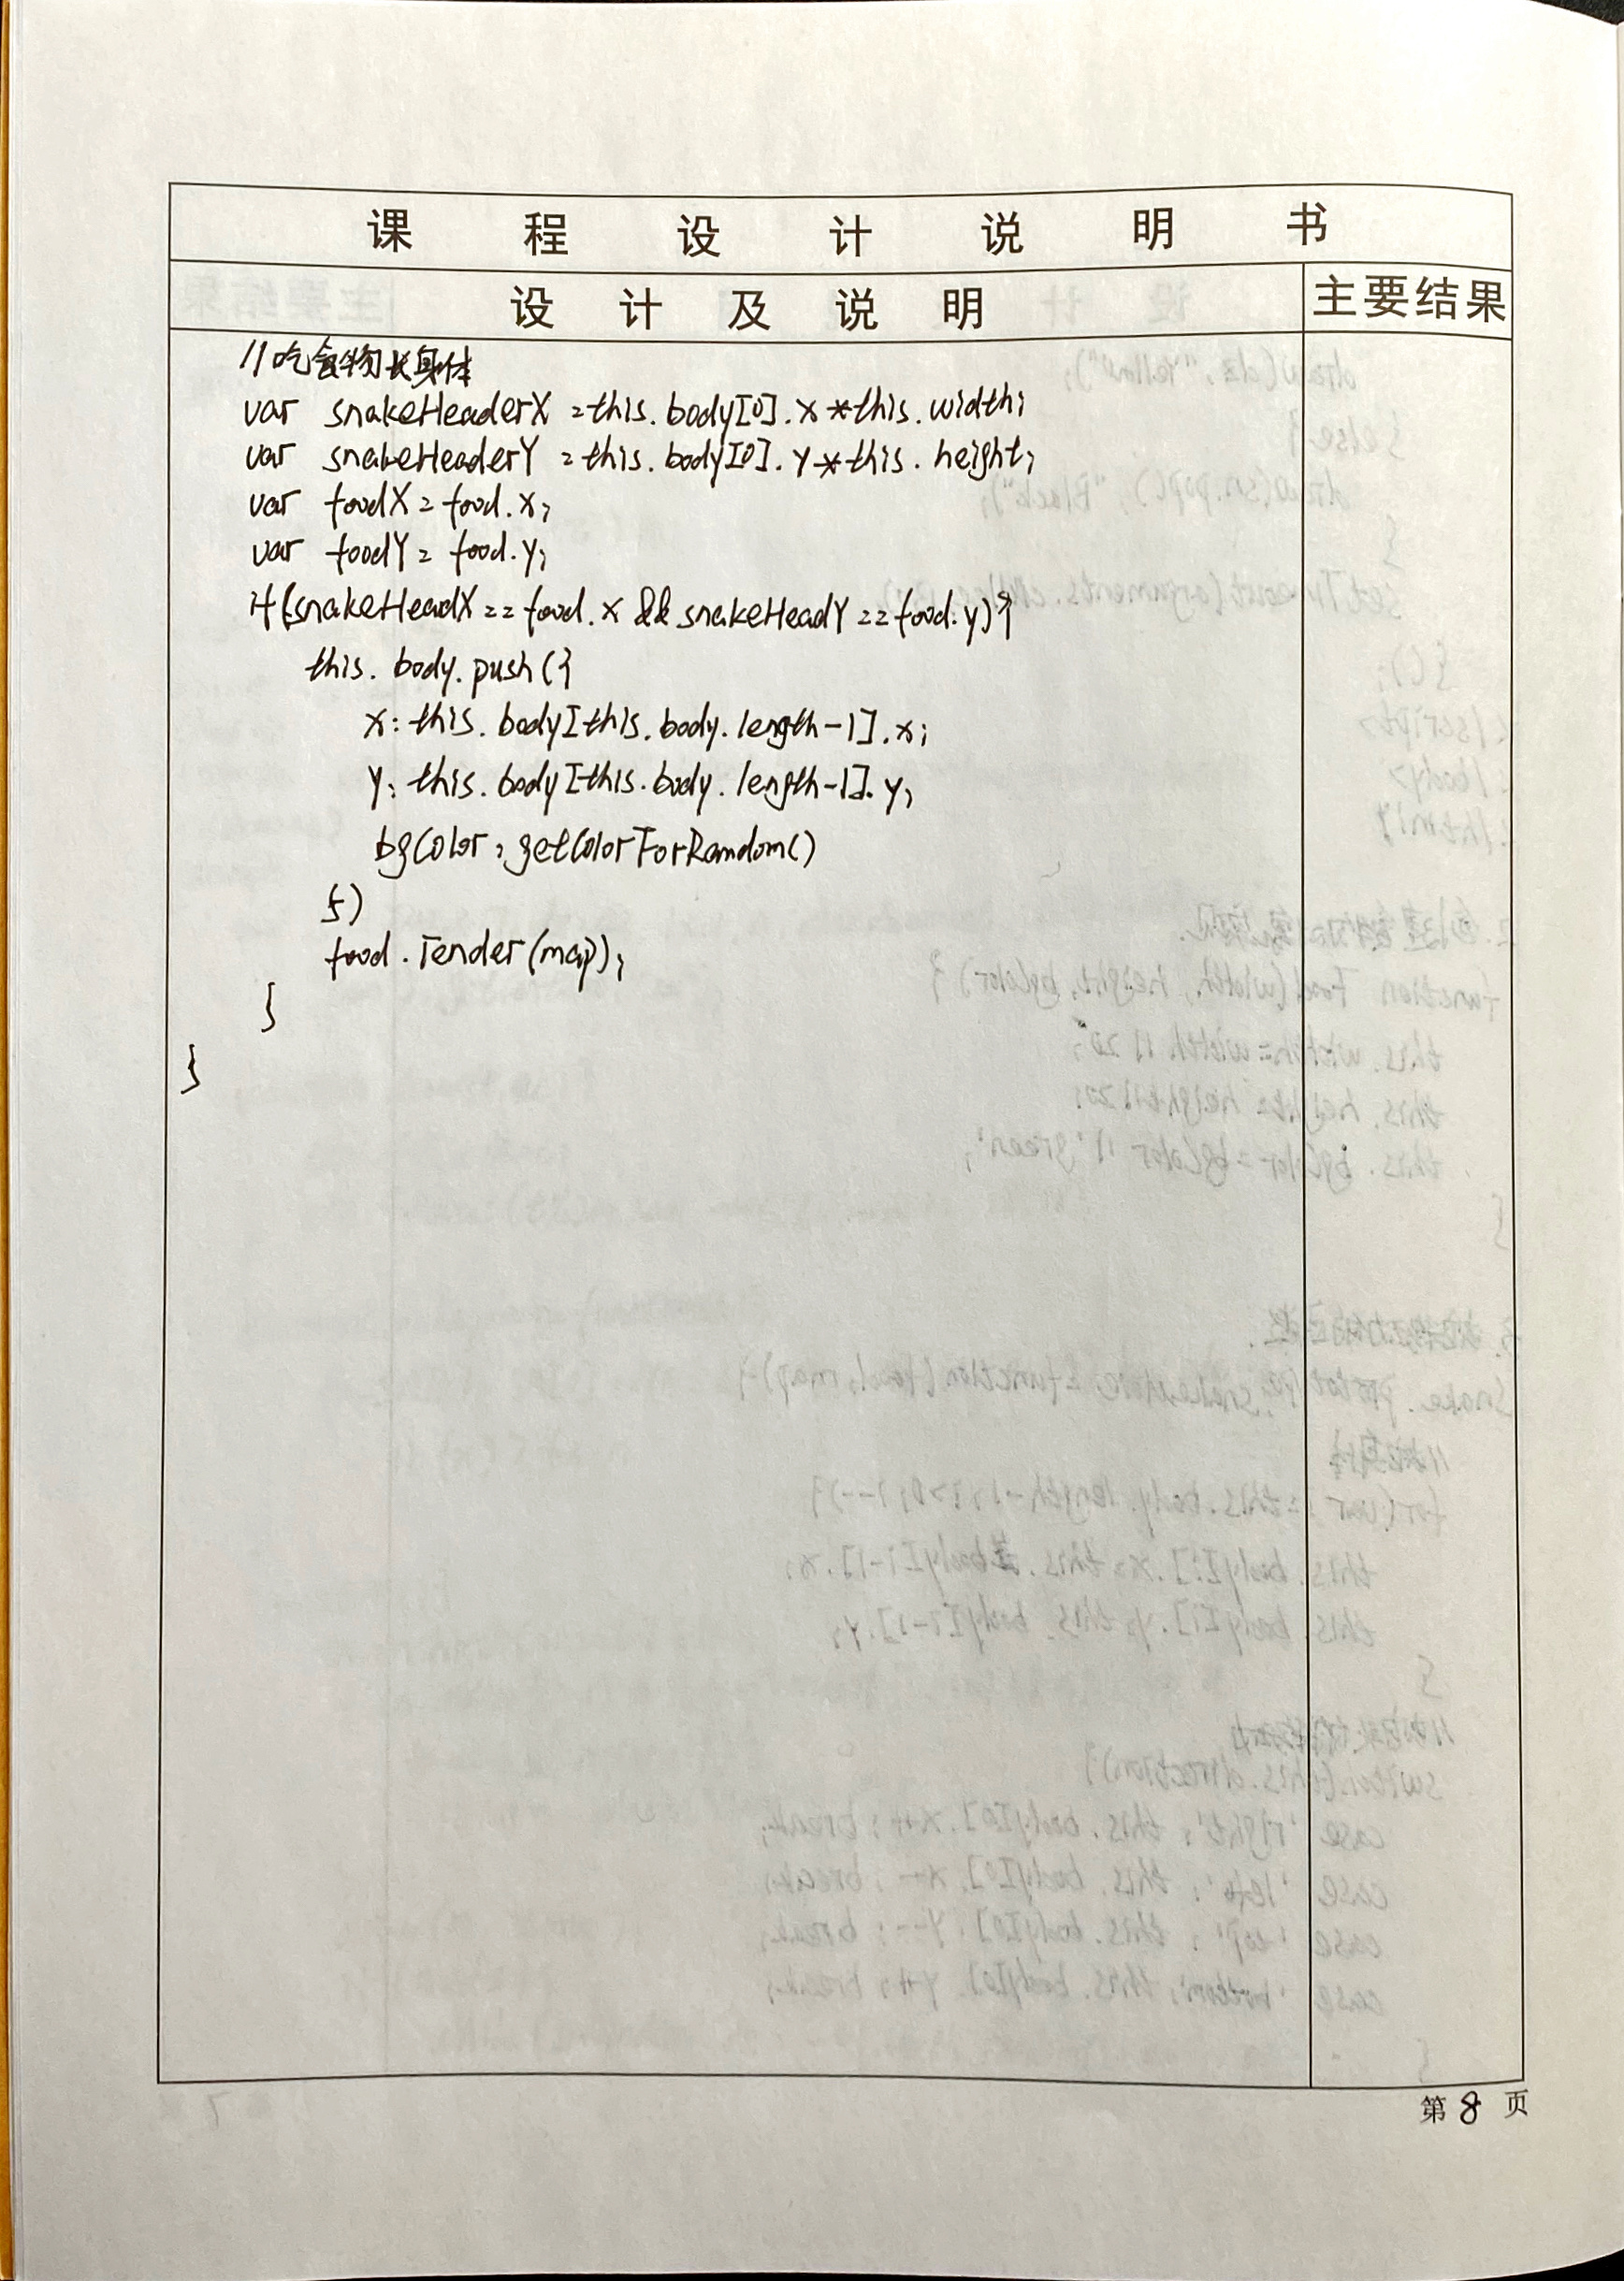 课程设计说明书
设计及说明
主要结果
//吃食物长身体
var snakeHeaderX =this.body[0].x*this.width;
var snakeHeaderY =this.body[0].y*this.height;
var foodX=food.x;
var foodY=food.y;
if(snakeHeadX==food.x&&snakeHeadY==food.y){
this.body.push({
x:this.body[this.body.length-1].x;
y:this.body[this.body.length-1].y;
bgColor:getColorForRandom()
})
food.render(map);
}
}
第8页